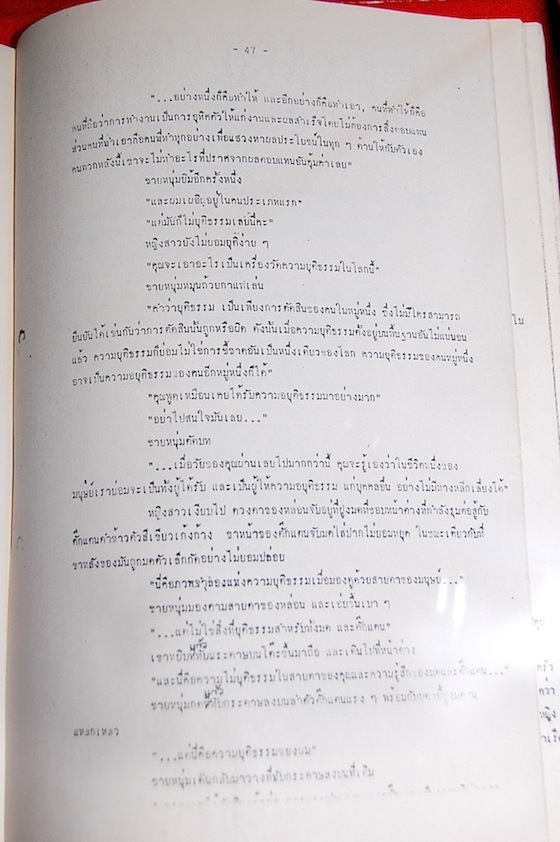 - 47 -
"...อย่างหนึ่งก็คือทำให้ และอีกอย่างก็คือทำเอา, คนที่ทำให้ก็คือ
คนที่ถือว่าการทำงานเป็นการอุทิศตัวให้แก่งานและผลสำเร็จโดยไม่ต้องการสิ่งตอบแทน
ส่วนคนที่ทำเอาคือคนที่ทำทุกอย่างเพื่อแสวงหาผลประโยชน์ในทุก ๆ ด้านให้กับตัวเอง
คนพวกหลังนี้เขาจะไม่ทำอะไรที่ปราศจากผลตอบแทนอันคุ้มค่าเลย"
ชายหนุ่มยิ้มอีกครั้งหนึ่ง
"และผมเผอิญอยู่ในคนประเภทแรก"
"แต่มันก็ไม่ยุติธรรมเลยนี่คะ"
หญิงสาวยังไม่ยอมยุติง่าย ๆ
"คุณจะเอาอะไรเป็นเครื่องวัดความยุติธรรมในโลกนี้"
ชายหนุ่มหมุนถ้วยกาแฟเล่น
"คำว่ายุติธรรม เป็นเพียงการตัดสินของคนในหมู่หนึ่ง ซึ่งไม่มีใครสามารถ
ยืนยันได้เช่นกันว่าการตัดสินนั้นถูกหรือผิด ดังนั้นเมื่อความยุติธรรมตั้งอยู่บนพื้นฐานอันไม่แน่นอน
แล้ว ความยุติธรรมก็ย่อมไม่ใช่การชี้ขาดอันเป็นหนึ่งเดียวของโลก ความยุติธรรมของคนหมู่หนึ่ง
อาจเป็นความอยุติธรรมของคนอีกหมู่หนึ่งก็ได้"
"คุณพูดเหมือนเคยได้รับความอยุติธรรมมาอย่างมาก"
"อย่าไปสนใจมันเลย..."
ชายหนุ่มตัดบท
"...เมื่อวัยของคุณผ่านเลยไปมากกว่านี้ คุณจะรู้เองว่าในชีวิตหนึ่งของ
มนุษย์เราย่อมจะเป็นทั้งผู้ได้รับ และเป็นผู้ให้ความอยุติธรรม แก่บุคคลอื่น อย่างไม่มีทางหลีกเลี่ยงได้"
หญิงสาวเงียบไป ดวงตาของหล่อนจับอยู่ที่ฝูงมดที่ขอบหน้าต่างที่กำลังรุมต่อสู้กับ
ตั๊กแตนตำข้าวตัวสีเขียวเก้งก้าง ขาหน้าของตั๊กแตนจับมดใส่ปากไม่ยอมหยุด ในขณะเดียวกันที่
ขาหลังของมันถูกมดตัวเล็กกัดอย่างไม่ยอมปล่อย
"นี่คือภาพจำลองแห่งความยุติธรรมเมื่อมองดูด้วยสายตาของมนุษย์..."
ชายหนุ่มมองตามสายตาของหล่อน และเอ่ยขึ้นเบา ๆ
"...แต่ไม่ใช่สิ่งที่ยุติธรรมสำหรับทั้งมด และตั๊กแตน"
เขาหยิบแก้วทับกระดาษบนโต๊ะขึ้นมาถือ และเดินไปที่หน้าต่าง
"และนี่คือความไม่ยุติธรรมในสายตาของคุณและความรู้สึกของมดและตั๊กแตน..."
ชายหนุ่มกดแก้วทับกระดาษลงบนลำตัวตั๊กแตนแรง ๆ พร้อมกับบดขยี้ฝูงมดจน
แหลกเหลว
"...แต่นี่คือความยุติธรรมของผม"
ชายหนุ่มเดินกลับมาวางที่ทับกระดาษลงบนที่เดิม